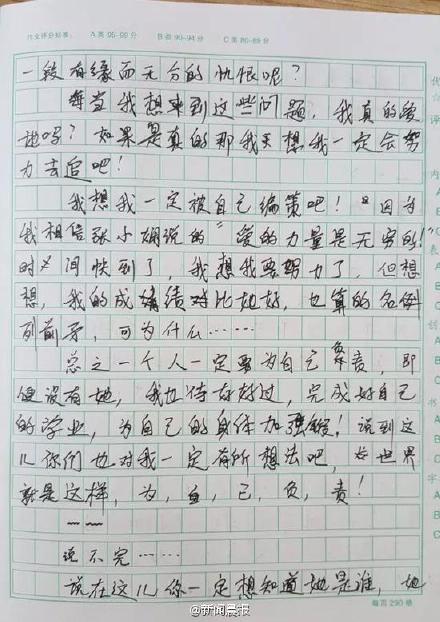 作文评分标准: A类95-99分 B类90-94分 C类80-89分
一段有缘而无分的忧恨呢?
每当我想来到这些问题,我真的爱
她吗?如果是真的那我想我一定会努
力去追吧!
我想我一定被自己编策吧!因为
我相信张小娴说的"爱的力量是无穷的!"
时间快到了,我想我要努力了,但想
想,我的成绩对比她好,也算的名倒
列前矛,可为什么……
总之一个人一定要为自己负责,即
便没有她,我也得好好过,完成好自己
的学业,为自己的身体加强锻!说到这
儿你们也对我一定有所想法吧,世界
就是这样,为,自,己,负,责!
——
说不完……
说在这儿你一定想知道她是谁,她
每页290格
@新闻晨报